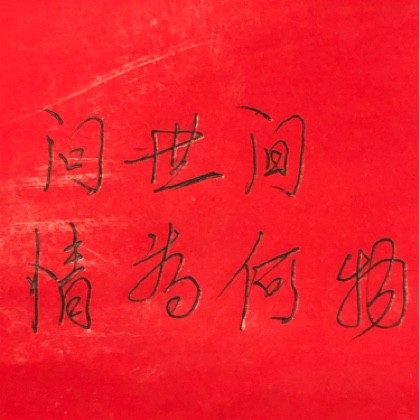 问世间
情为何物